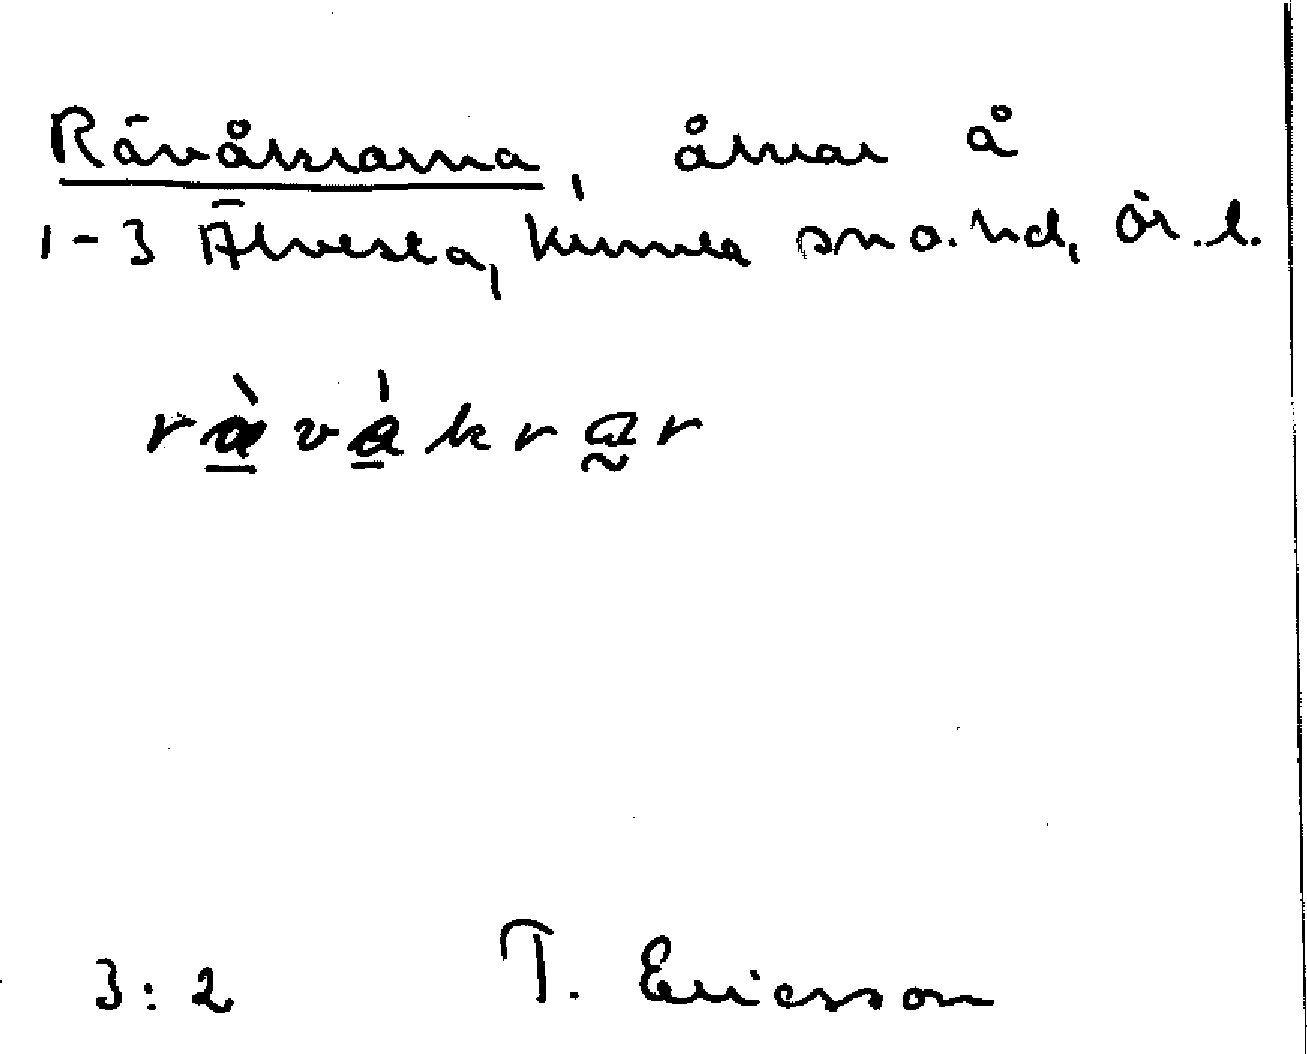 Rävåkrarna, åkrar å
1-3 Älvesta, Kumla sn o. hd, Ör. l.
ràvákrar
3:2 T. Ericsson